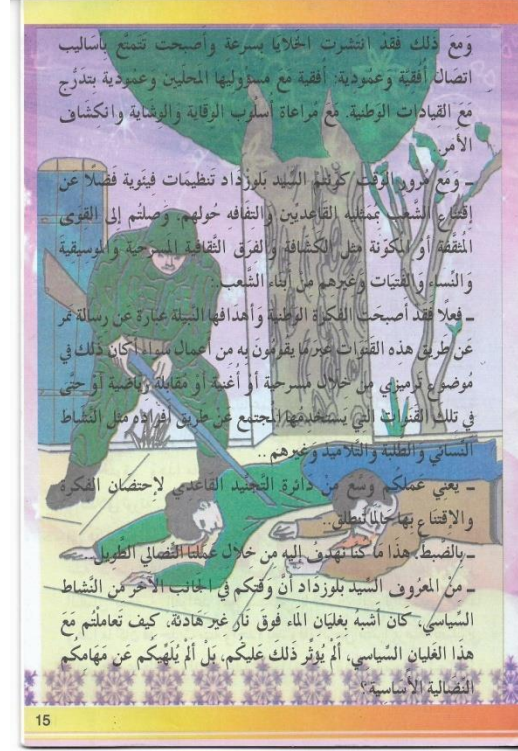 وَمَعَ ذَلك فَقدْ انتَشرت الخَلايَا بسرعَة وأصبحت تَتمتَّع بأسَاليب
اتصَال أُفقيَّة وعمُودية: أفقية مَعَ مسؤُوليها المحَليين وعمُودية بتدَرُّج
مَعَ القِيادات الوَطنية. مَع مُراعاة أسلُوب الوِقاية والوِشاية وانكشَاف
الأمر.
ـ وَمَعَ مُرور الوَقت كوَّنتم السّيد بلوزداد تَنظيمَات فيئوية فَضلًا عن
إقتِنَاع الشَّعب بممثليه القَاعديين والتفافه حُولهم. وَصلتُم إلى القوَى
المُثقَّفة أو المكوّنة مثل الكشَّافة والفرَق الثَّقافية المسرَحية والموسيقيَة
وَالنِّساء والفتيَات وَغيرهم من أبنَاء الشَّعب.
ـ فعلًا فقَد أصبحَت الفكرة الوطنية وَأهدافها النَبيلة عبَارة عن رسالة تمر
عَن طريق هذه القَنَوات عبر مَا يقُومُون به من أعمال سَواء أكان ذَلك في
مُوضوع ترميزي من خلال مسرحية أو أُغنية أو مقابلة ريَاضية أوْ حتَّى
في تلكَ القنَوات التي يستخدمها المجتمع عَن طريق أفرَاده مثل النَّشاط
النِّسائي والطَّلبة والتَّلاميد وَغيرهم ..
ـ يَعني عَملكُم وسَّع منْ دَائرة التَجنيد القَاعدي لإحتضَان الفكرَة
والإقتنَاع بهَا حَالما تنطَلق..
ـ بالضبطِ. هذَا مَا كنَّا نَهدفُ إليه من خلال عمَلنَا النّضَالي الطَّويل
ـ منْ المعرُوف السّيد بلوزداد أنَّ وَقتكم في الجَانب الآخَر منَ النَّشاط
السّياسي، كَان أشبهُ بغليَان المَاء فَوق نَار غير هَادئة، كيف تَعاملتُم مَعَ
هذَا الغَليان السّياسي، ألمْ يُؤثِّر ذَلك عَليكُم، بَلْ ألمْ يُلهْيكُم عَن مَهَامكُم
النّضَالية الأَساسية؟
15